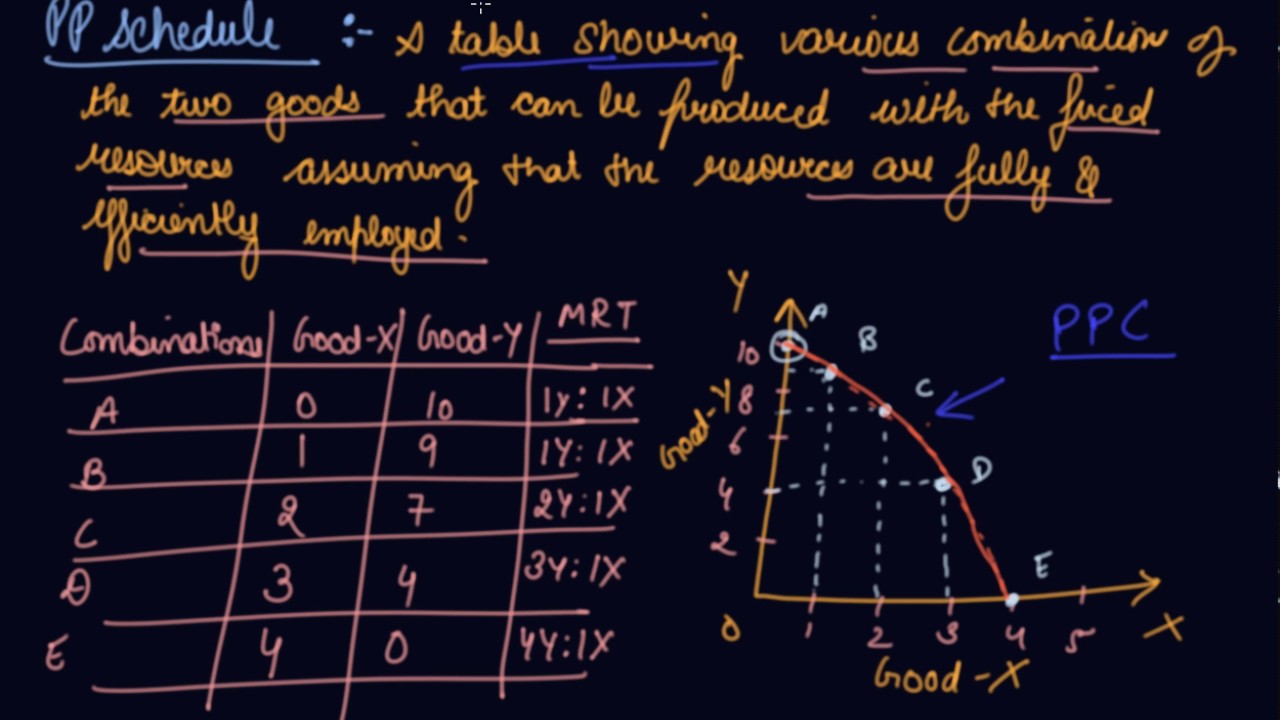 PP schedule :- A table showing various combination of
the two goods that can be produced with the fixed
resources assuming that the resources are fully &
efficiently employed.
Combinations Good-X Good-Y MRT
A 0 10 1Y:1X
B 1 9 1Y:1X
C 2 7 2Y:1X
D 3 4 3Y:1X
E 4 0 4Y:1X
Y
PPC
A
B
C
D
E
10
8
6
4
2
0
Good-Y
1 2 3 4 5
X
Good-X